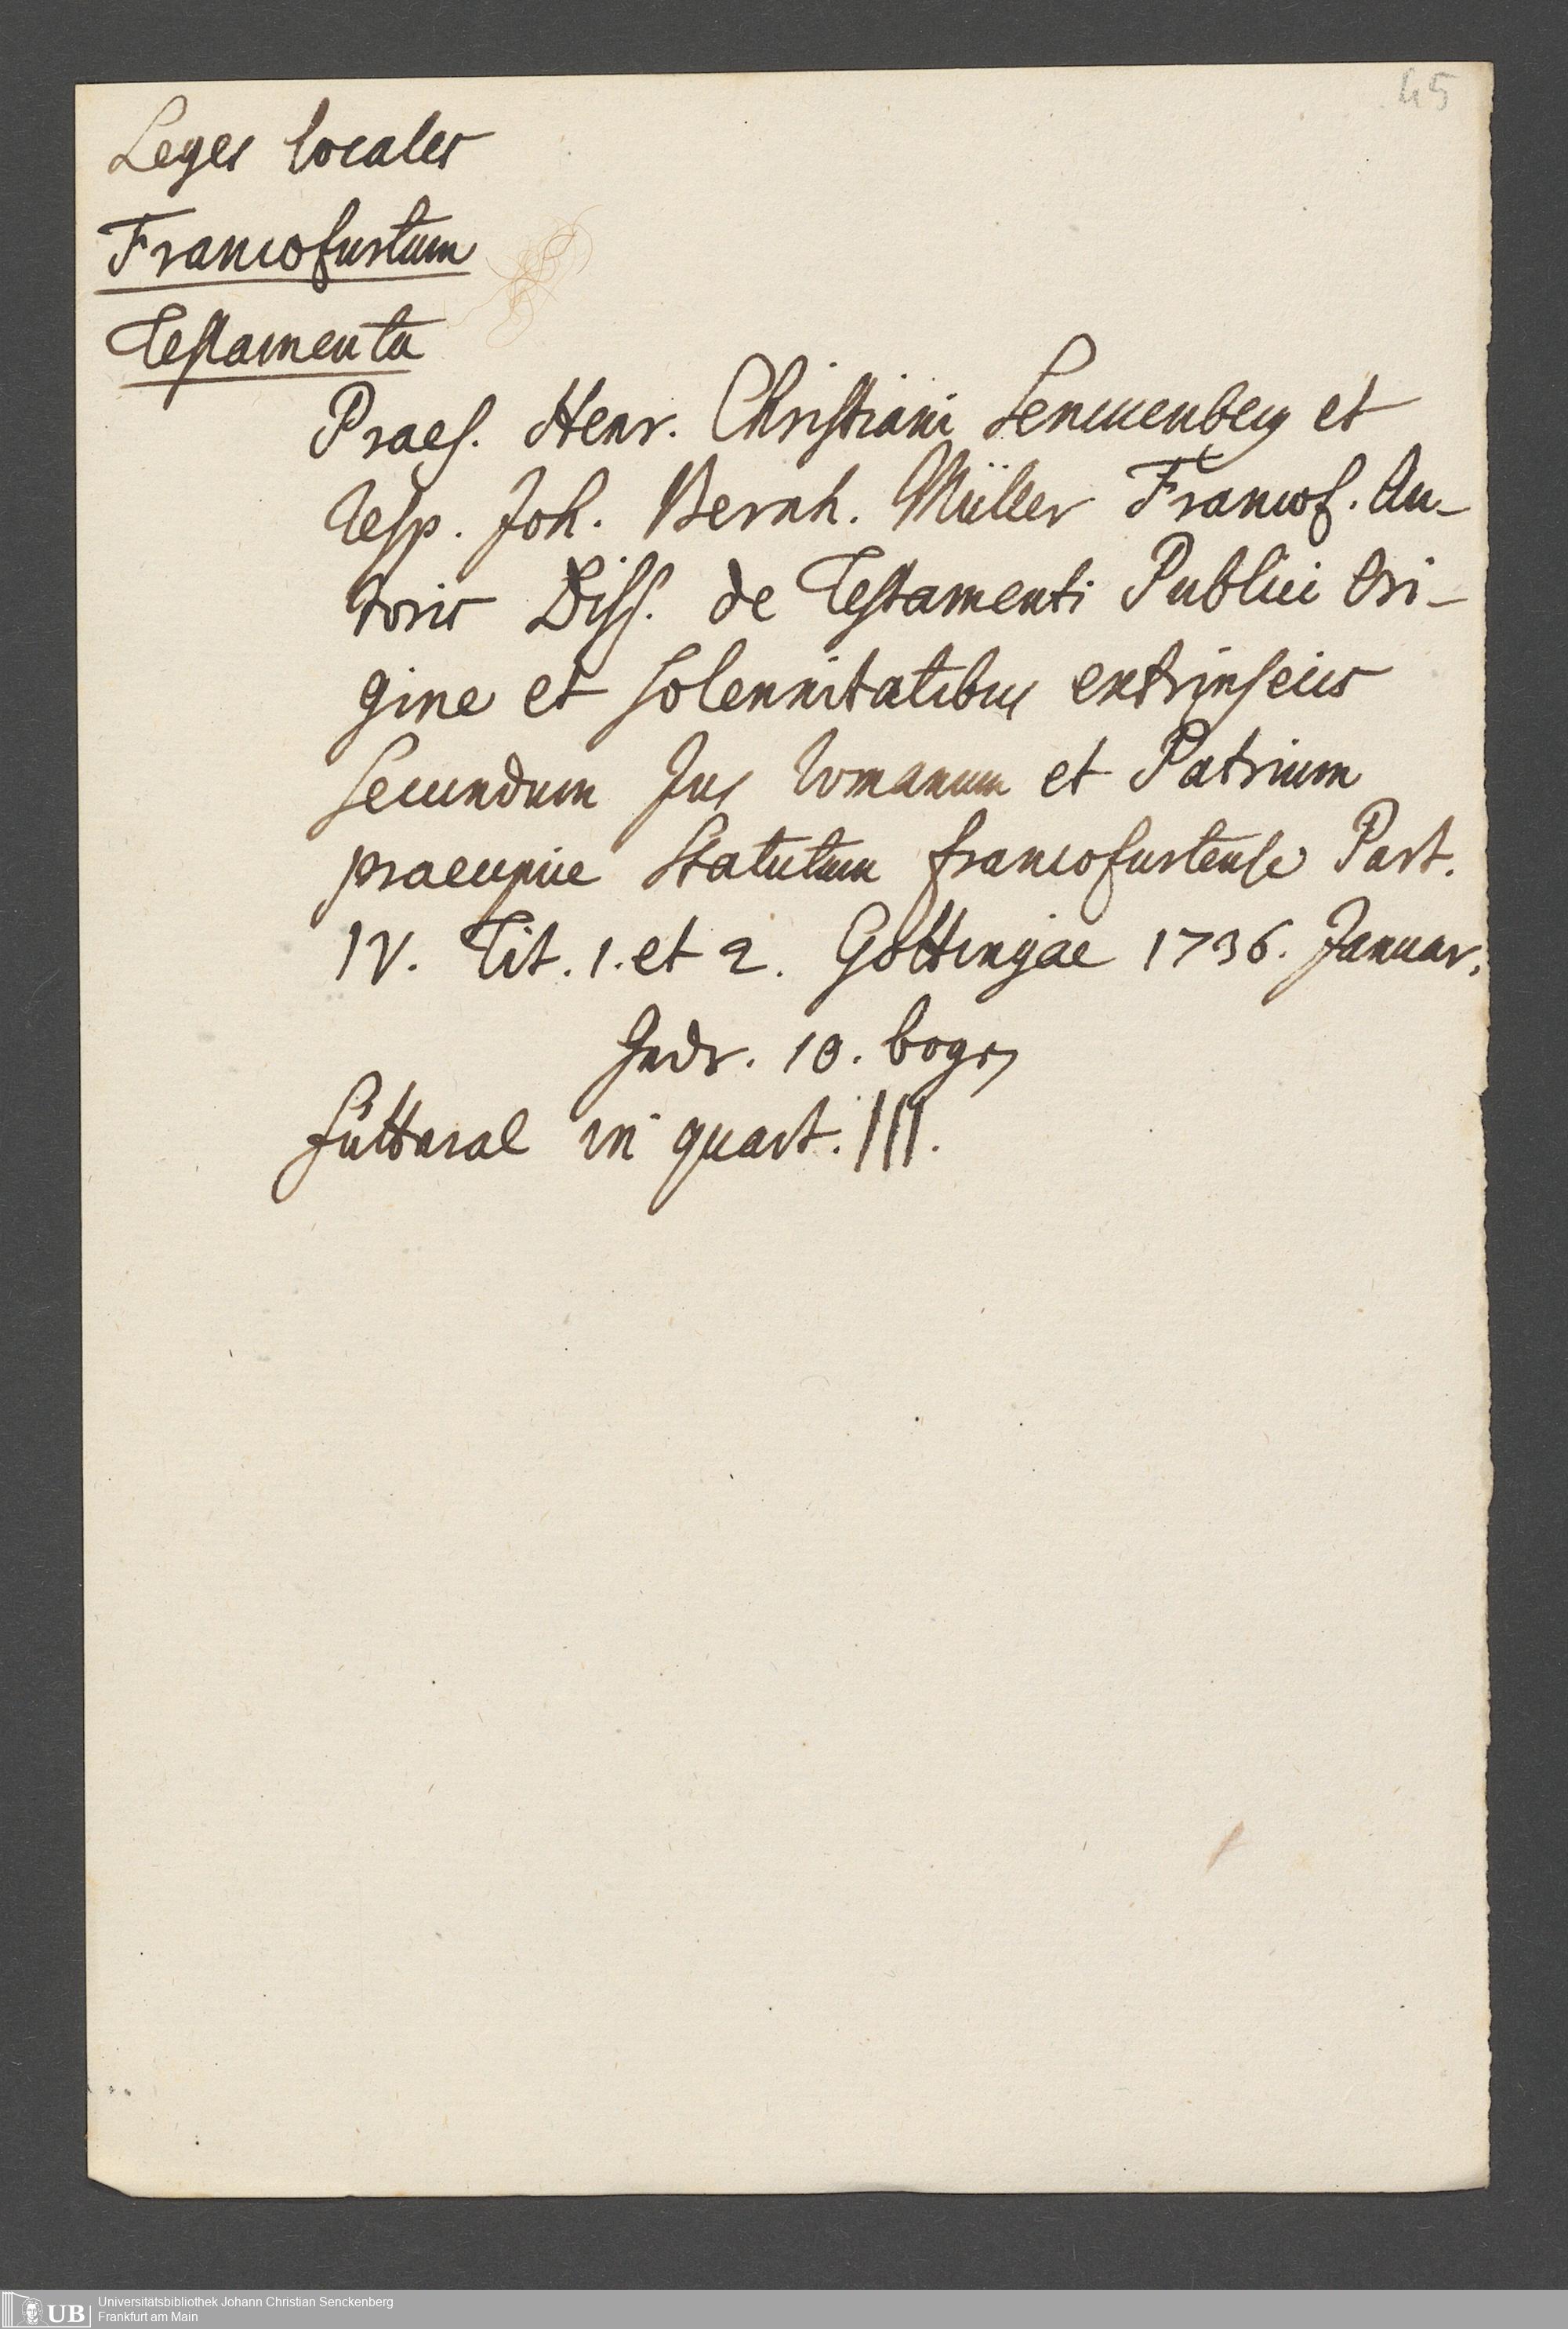 45
Leges locales
Francofurtum
Testamenta
Praes. Henr. Christiani Senckenberg et
Resp. Joh. Bernh. Müller Francof. Au-
toris Diss. de Testamenti Publici Ori-
gine et solennitatibus extrinsecis
secundum Jus Romanum et Patrium
praecipue Statutum francofurtense Part.
IV. Tit. 1. et 2. Gottingae 1736. Januar.
10. bogen
futteral in quart. III.
UB Universitätsbibliothek Johann Christian Senckenberg
Frankfurt am Main